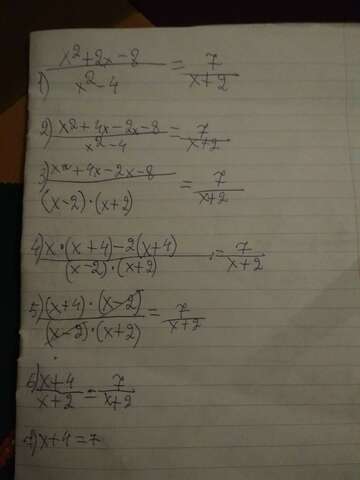 1) (x²+2x-8)/(x²-4) = 7/(x+2)
2) (x²+4x-2x-8)/(x²-4) = 7/(x+2)
3) (x²+4x-2x-8)/((x-2)·(x+2)) = 7/(x+2)
4) (x·(x+4)-2(x+4))/((x-2)·(x+2)) = 7/(x+2)
5) ((x+4)·(x-2))/((x-2)·(x+2)) = 7/(x+2)
6) (x+4)/(x+2) = 7/(x+2)
7) x+4=7